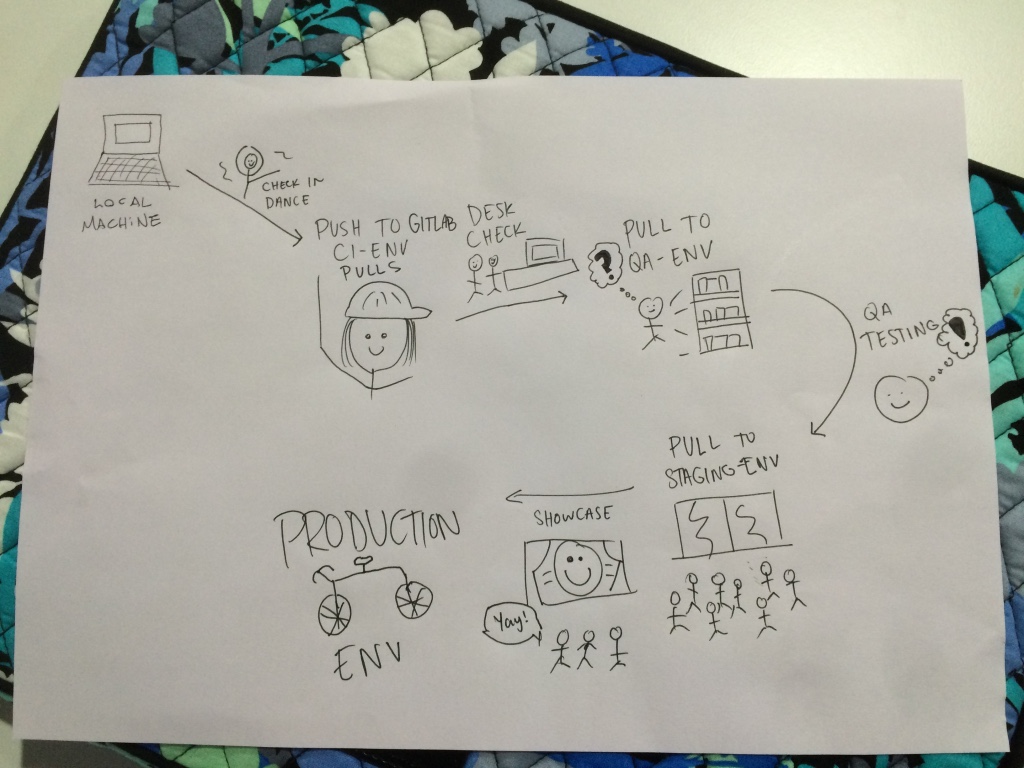 LOCAL
MACHINE
CHECK IN
DANCE
PUSH TO GITLAB
CI-ENV
PULLS
DESK
CHECK
?
PULL TO
QA-ENV
QA
TESTING
!
PULL TO
STAGING-ENV
SHOWCASE
Yay!
PRODUCTION
ENV